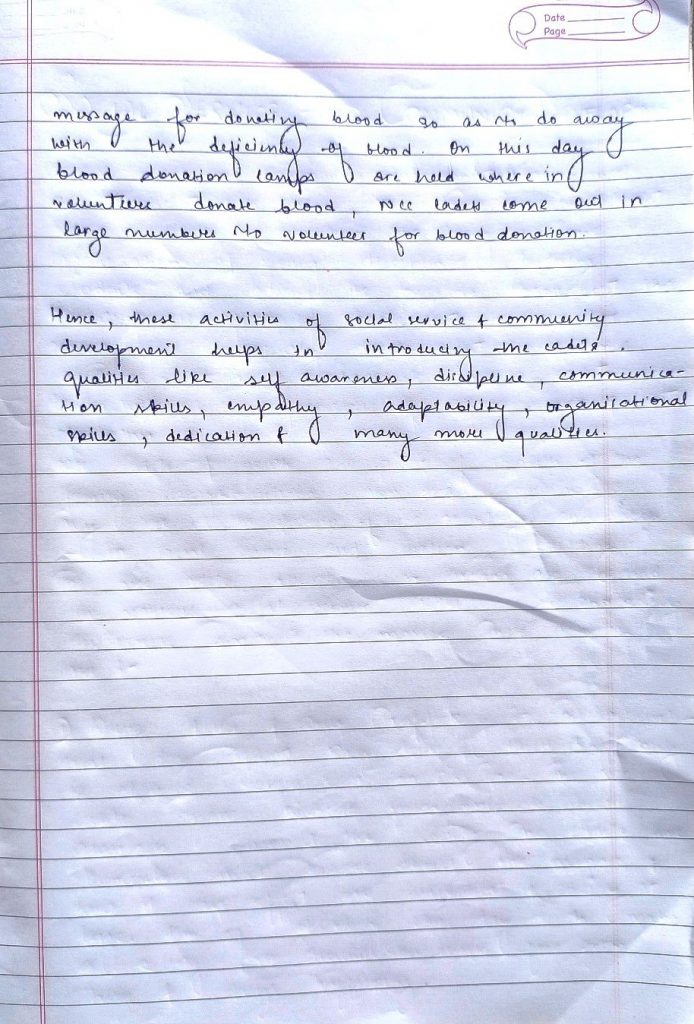 Date
Page
message for donating blood so as to do away
with the deficiency of blood. On this day
blood donation camps are held where in
volunteers donate blood, NCC cadets come out in
large numbers to volunteer for blood donation.
Hence, these activities of social service & community
development helps in introducing the cadets
qualities like self awareness, discipline, communica-
tion skills, empathy, adaptability, organisational
skills, dedication & many more qualities.